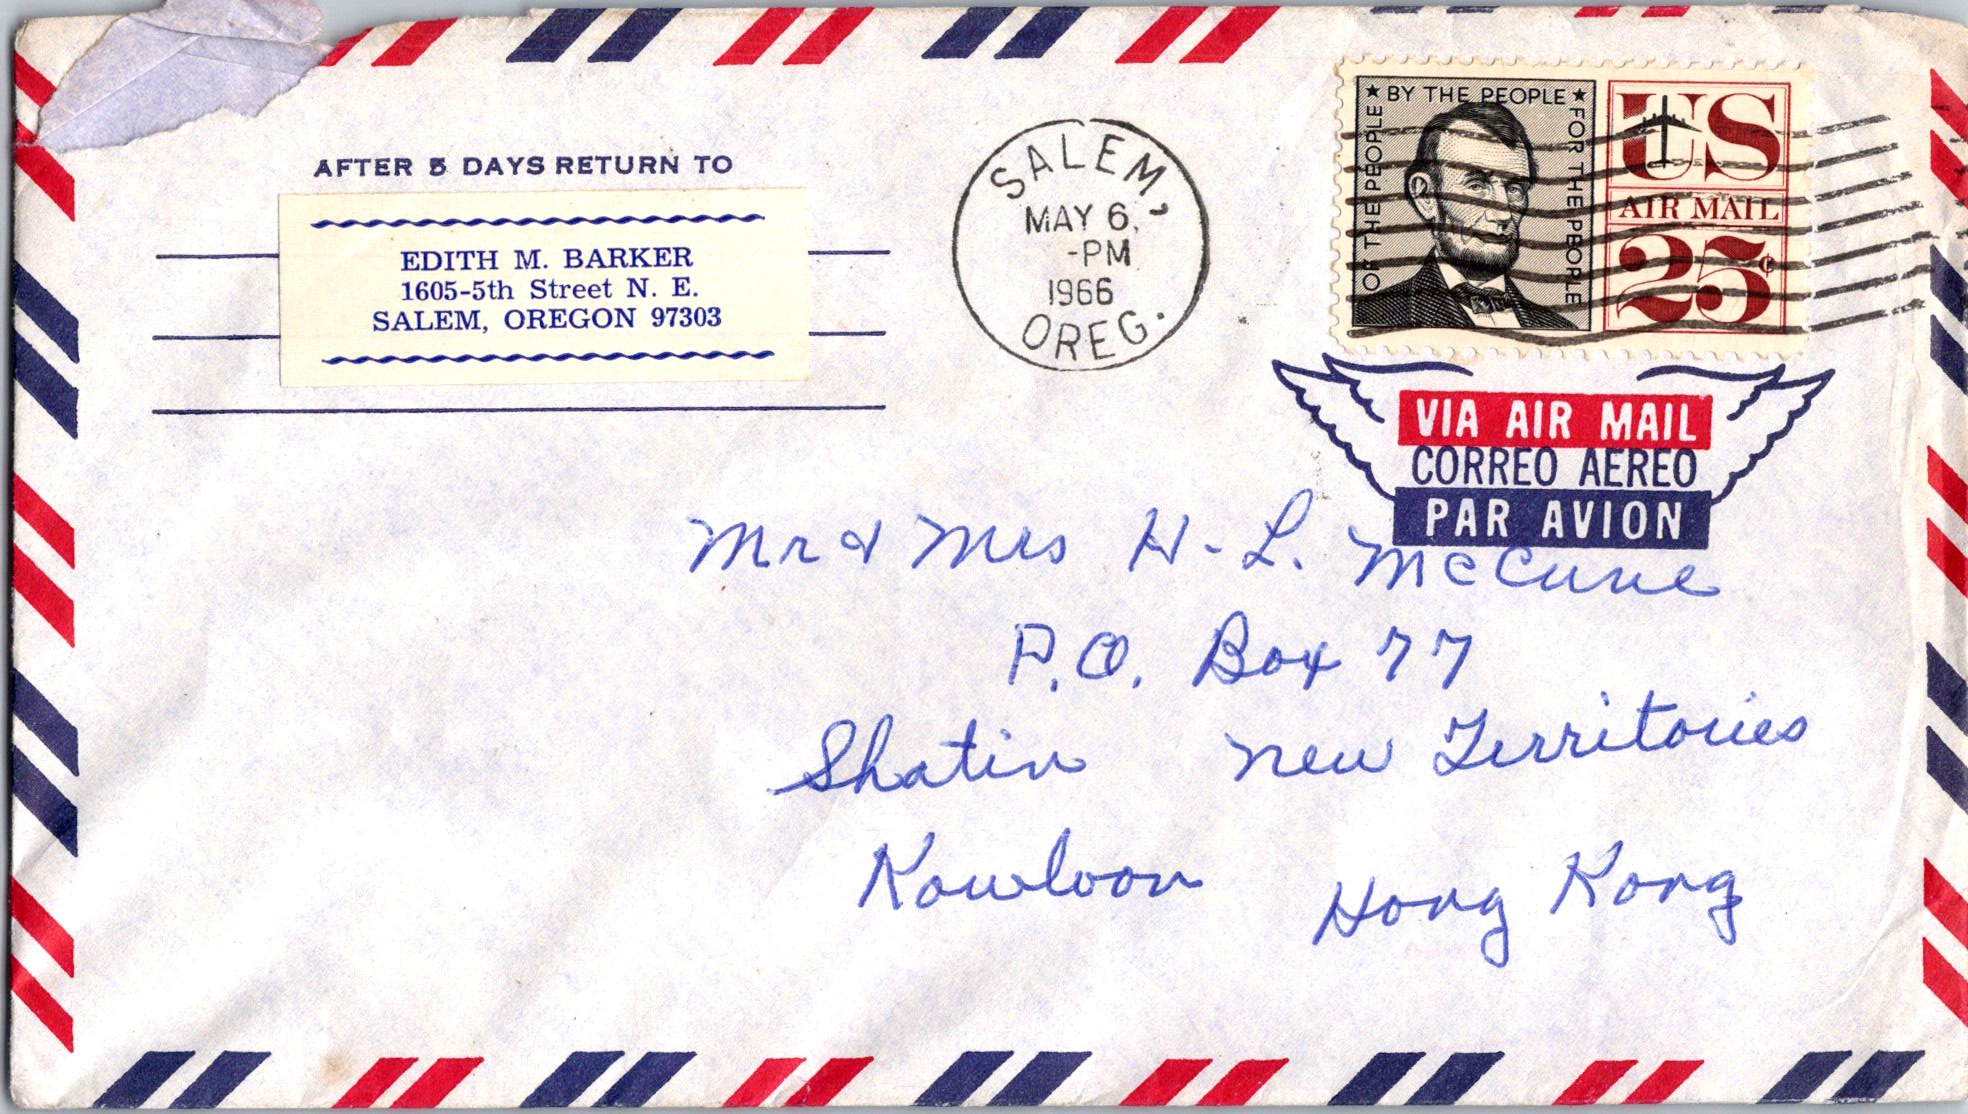 AFTER 5 DAYS RETURN TO
EDITH M. BARKER
1605-5th Street N. E.
SALEM, OREGON 97303
SALEM,
MAY 6,
-PM
1966
OREG.
OF THE PEOPLE ★ BY THE PEOPLE ★ FOR THE PEOPLE
US
AIR MAIL
25¢
VIA AIR MAIL
CORREO AEREO
PAR AVION
Mr & Mrs H-L. McCune
P.O. Box 77
Shatin New Territories
Kowloon Hong Kong